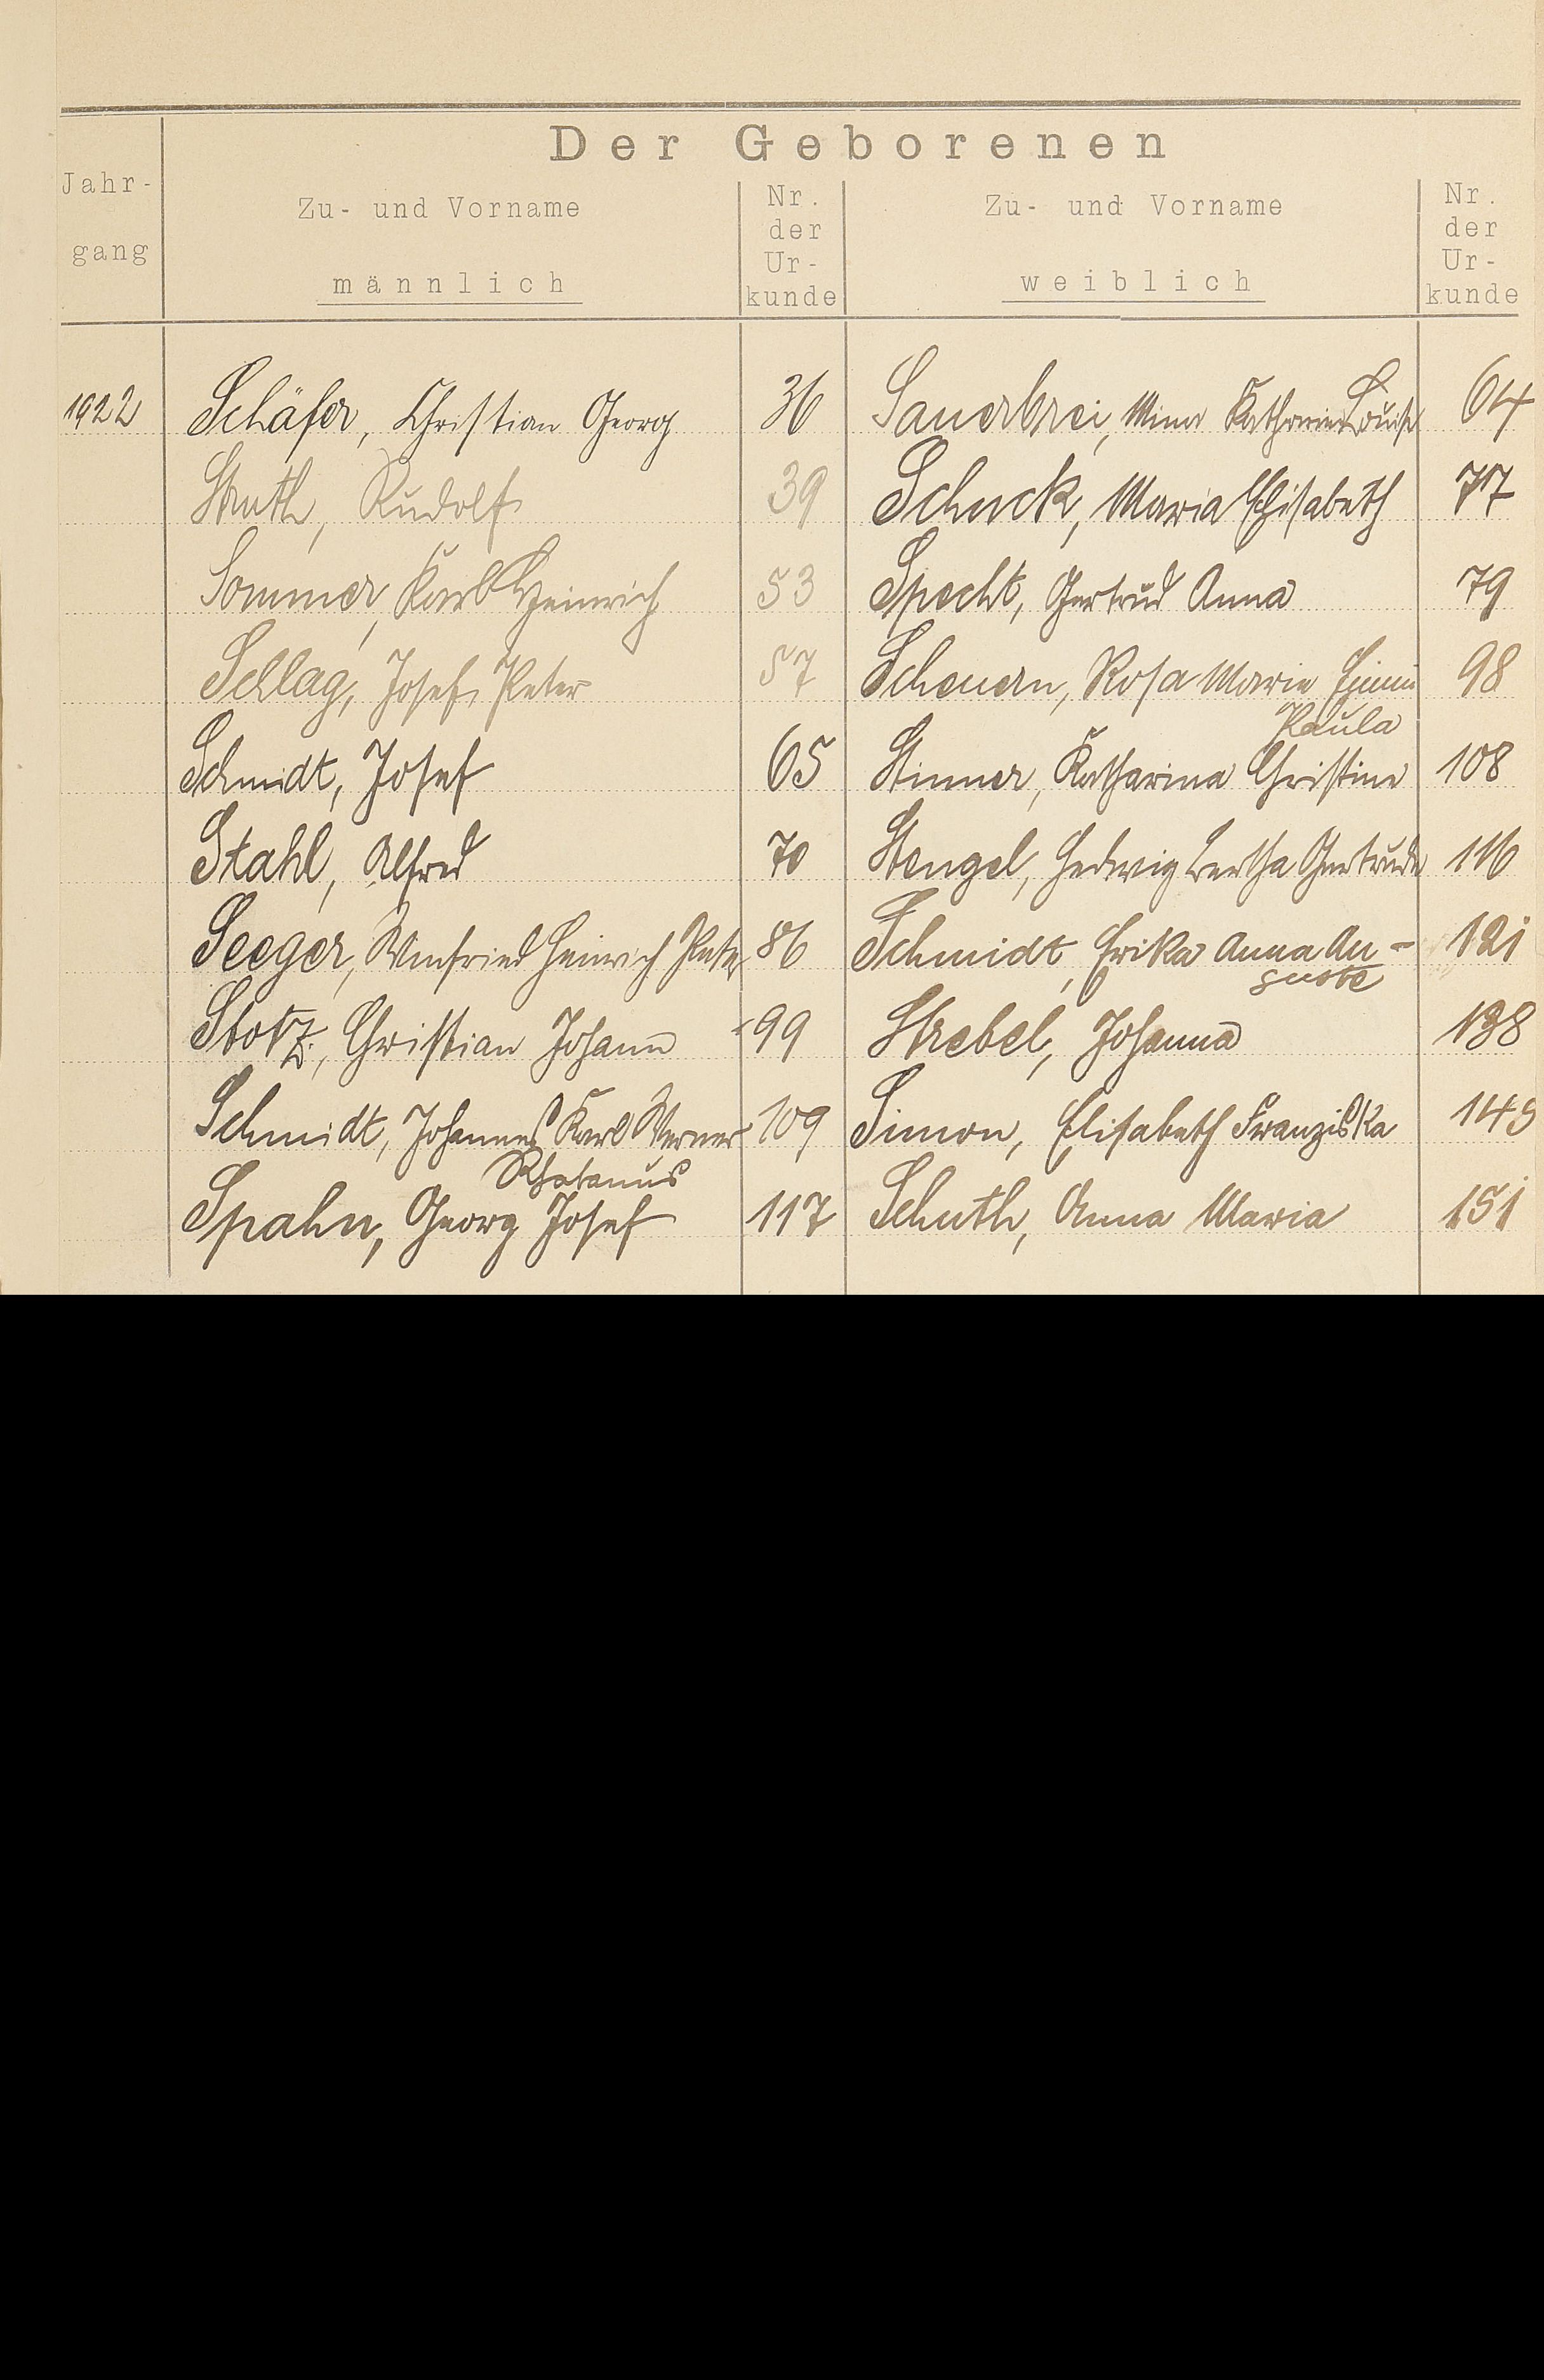 Der Geborenen
Jahr-
gang
Zu- und Vorname
männlich
Nr.
der
Ur-
kunde
Zu- und Vorname
weiblich
Nr.
der
Ur-
kunde
1922 Schäfer, Christian Georg 36 Sauerbrei, Mina Katharina Louise 64
Struth, Rudolf 39 Schuck, Maria Elisabeth 77
Sommer, Karl Heinrich 53 Specht, Gertrud Anna 79
Schlag, Josef Peter 57 Scheuern, Rosa Maria 98
Paula
Schmidt, Josef 65 Stinner, Katharina Christine 108
Stahl, Alfred 70 Stengel, Hedwig Bertha Gertrude 116
Seeger, Winfried Heinrich Peter 86 Schmidt, Erika Anna Au-
guste 121
Stotz, Christian Johann 99 Strebel, Johanna 138
Schmidt, Johannes Karl Werner 109 Simon, Elisabeth Franziska 145
Spahn, Georg Josef 117 Schuth, Anna Maria 151